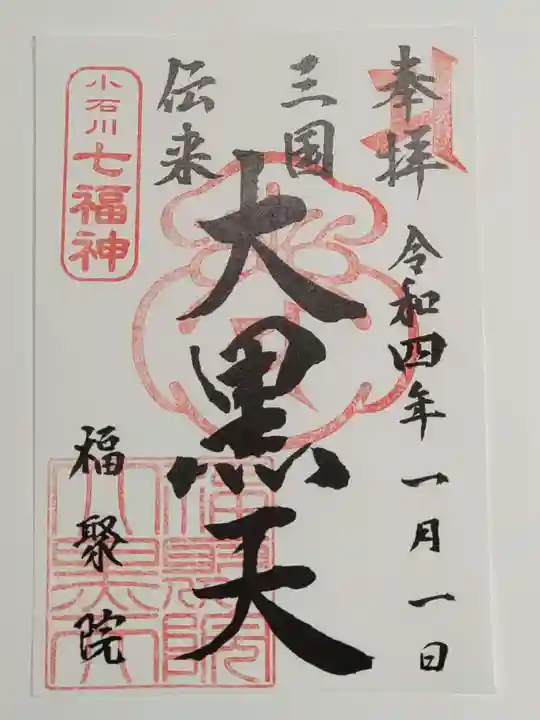 奉拝
令和四年一月一日
三国
伝来
大黒天
小石川七福神
福聚院